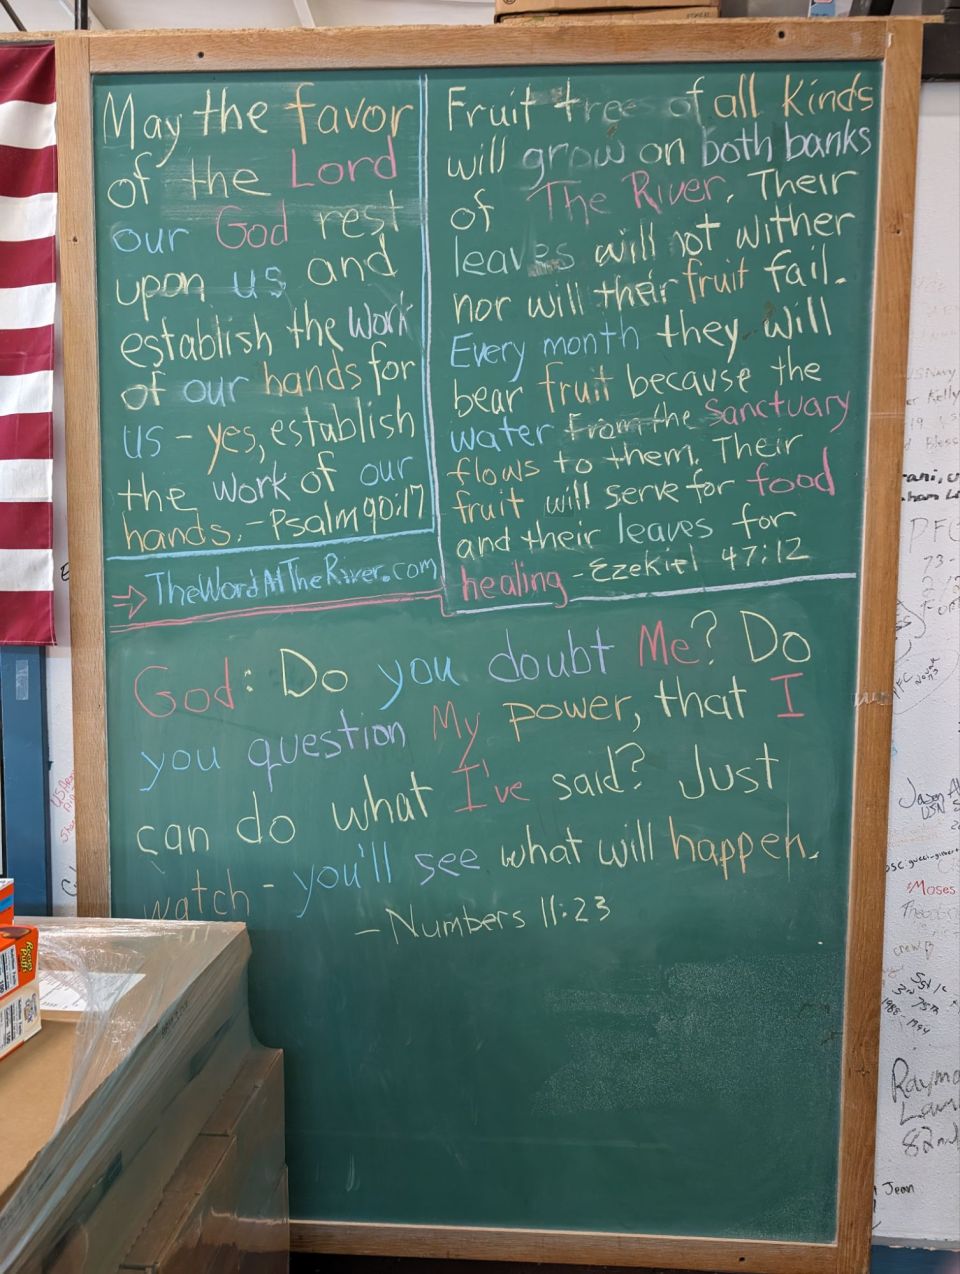 May the favor
of the Lord
our God rest
upon us and
establish the work
of our hands for
us - yes, establish
the work of our
hands. - Psalm 90:17
TheWordAtTheRiver.com
Fruit tree of all Kinds
will grow on both banks
of The River. Their
leaves will not wither
nor will their fruit fail.
Every month they will
bear fruit because the
water from the Sanctuary
flows to them. Their
fruit will serve for food
and their leaves for
healing - Ezekiel 47:12
God: Do you doubt Me? Do
you question My power, that I
can do what I've said? Just
watch - you'll see what will happen.
- Numbers 11:23
Jason
USN
Moses
crew
1988
May
Raymo
82nd
Jean
Kelly
PFC
73-
Reese's
Puffs